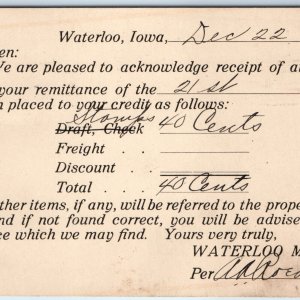 Waterloo, Iowa, Dec 22
en:
We are pleased to acknowledge receipt of a
your remittance of the 21st
n placed to your credit as follows:
Stamps
Draft, Check 40 Cents
Freight
Discount
Total 40 Cents
ther items, if any, will be referred to the prope
nd if not found correct, you will be advise
ce which we may find. Yours very truly,
WATERLOO M
Per